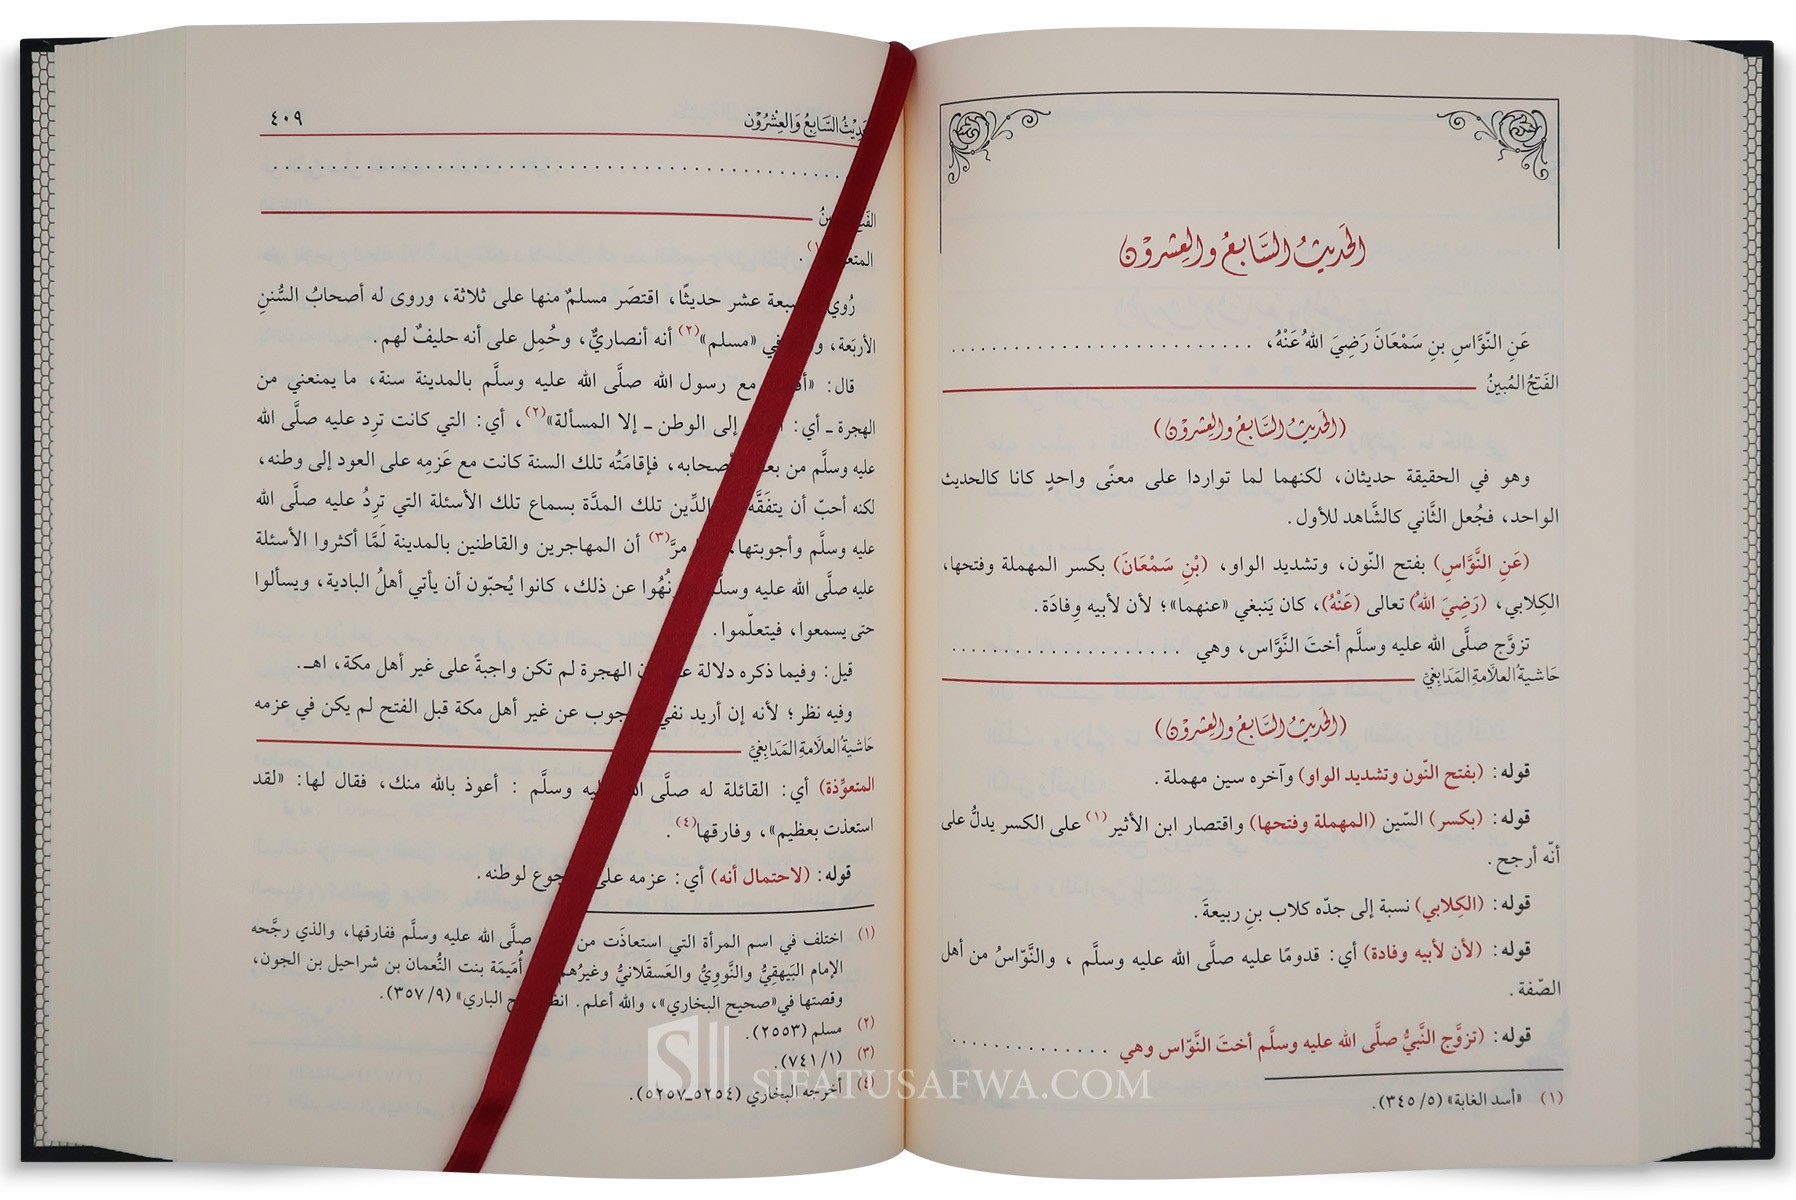 الحديث السابع والعشرون
عَنِ النّوَّاسِ بنِ سَمْعَانَ رَضِيَ اللهُ عَنْهُ، . . . . . . . . . . . . . . . . . . . . . . . . . . . .
الفَتحُ المُبينُ
(الحديث السابع والعشرون)
وهو في الحقيقة حديثان، لكنهما لما تواردا على معنًى واحدٍ كانا كالحديث
الواحد، فجُعل الثَّاني كالشَّاهد للأول.
(عَنِ النَّوَّاسِ) بفتح النّون، وتشديد الواو، (بْنِ سَمْعَانَ) بكسر المهملة وفتحها،
الكِلابي، (رَضِيَ اللهُ) تعالى (عَنْهُ)، كان يَنبغي «عنهما»؛ لأن لأبيه وِفادَة.
تزوَّج صلَّى الله عليه وسلَّم أختَ النَّوَّاس، وهي . . . . . . . . . . . . . . . . . . . . .
حَاشيةُ العلَّامةِ المَدَابِغيِّ
(الحديث السابع والعشرون)
قوله: (بفتح النّون وتشديد الواو) وآخره سين مهملة.
قوله: (بكسر) السّين (المهملة وفتحها) واقتصار ابن الأثير(١) على الكسر يدلُّ على
أنّه أرجح.
قوله: (الكِلابي) نسبة إلى جدّه كلاب بنِ ربيعةَ.
قوله: (لأن لأبيه وفادة) أي: قدومًا عليه صلَّى الله عليه وسلَّم ، والنَّوّاسُ من أهل
الصّفة.
قوله: (تزوَّج النَّبيُّ صلَّى الله عليه وسلَّم أختَ النَّوّاس وهي . . . . . . . . . . . . . .
(١) «أسد الغابة» (٣٤٥/٥).
السَّابِعُ وَالعِشْرُوْن ٤٠٩
. . . . . . . . . . . . . . . . . . . . . . . . . . . . . . . . . . . . . . . . . . . . . . . . . .
رُوي سبعة عشر حديثًا، اقتصَر مسلمٌ منها على ثلاثة، وروى له أصحابُ السُّننِ
الأربَعة، في «مسلم»(٢) أنه أنصاريٌّ، وحُمِل على أنه حليفٌ لهم.
قال: مع رسول الله صلَّى الله عليه وسلَّم بالمدينة سنة، ما يمنعني من
الهجرة ـ أي: إلى الوطن ـ إلا المسألة»(٢)، أي: التي كانت ترِد عليه صلَّى الله
عليه وسلَّم من أصحابه، فإقامَتُه تلك السنة كانت مع عَزمِه على العود إلى وطنه،
لكنه أحبّ أن يتفَقَّه الدِّين تلك المدَّة بسماع تلك الأسئلة التي ترِدُ عليه صلَّى الله
عليه وسلَّم وأجوبتها، مرَّ(٣) أن المهاجرين والقاطنين بالمدينة لَمَّا أكثروا الأسئلة
عليه صلَّى الله عليه وسلَّم نُهُوا عن ذلك، كانوا يُحبّون أن يأتي أهلُ البادية، ويسألوا
حتى يسمعوا، فيتعلّموا.
قيل: وفيما ذكره دلالة الهجرة لم تكن واجبةً على غير أهل مكة، اهـ.
وفيه نظر؛ لأنه إن أريد نفي عن غير أهل مكة قبل الفتح لم يكن في عزمه
حَاشيةُ العلَّامةِ المَدَابِغيِّ
المتعوِّذة) أي: القائلة له صلَّى الله عليه وسلَّم : أعوذ بالله منك، فقال لها: «لقد
استعذت بعظيم»، وفارقها(٤).
قوله: (لاحتمال أنه) أي: عزمه على لوطنه.
(١) اختلف في اسم المرأة التي استعاذَت من صلَّى الله عليه وسلَّم ففارقها، والذي رجَّحه
الإمام البَيهقِيُّ والنَّوويُّ والعَسقلانيُّ وغيرُهم أُمَيمَة بنت النُّعمان بن شراحيل بن الجون،
وقصتها في «صحيح البخاري»، والله أعلم. الباري» (٣٥٧/٩).
(٢) مسلم (٢٥٥٣).
(٣) (٧٤١/١).
(٤) أخرجه البخاري (٥٢٥٤ـ٥٢٥٧).
SIFATUSAFWA.COM